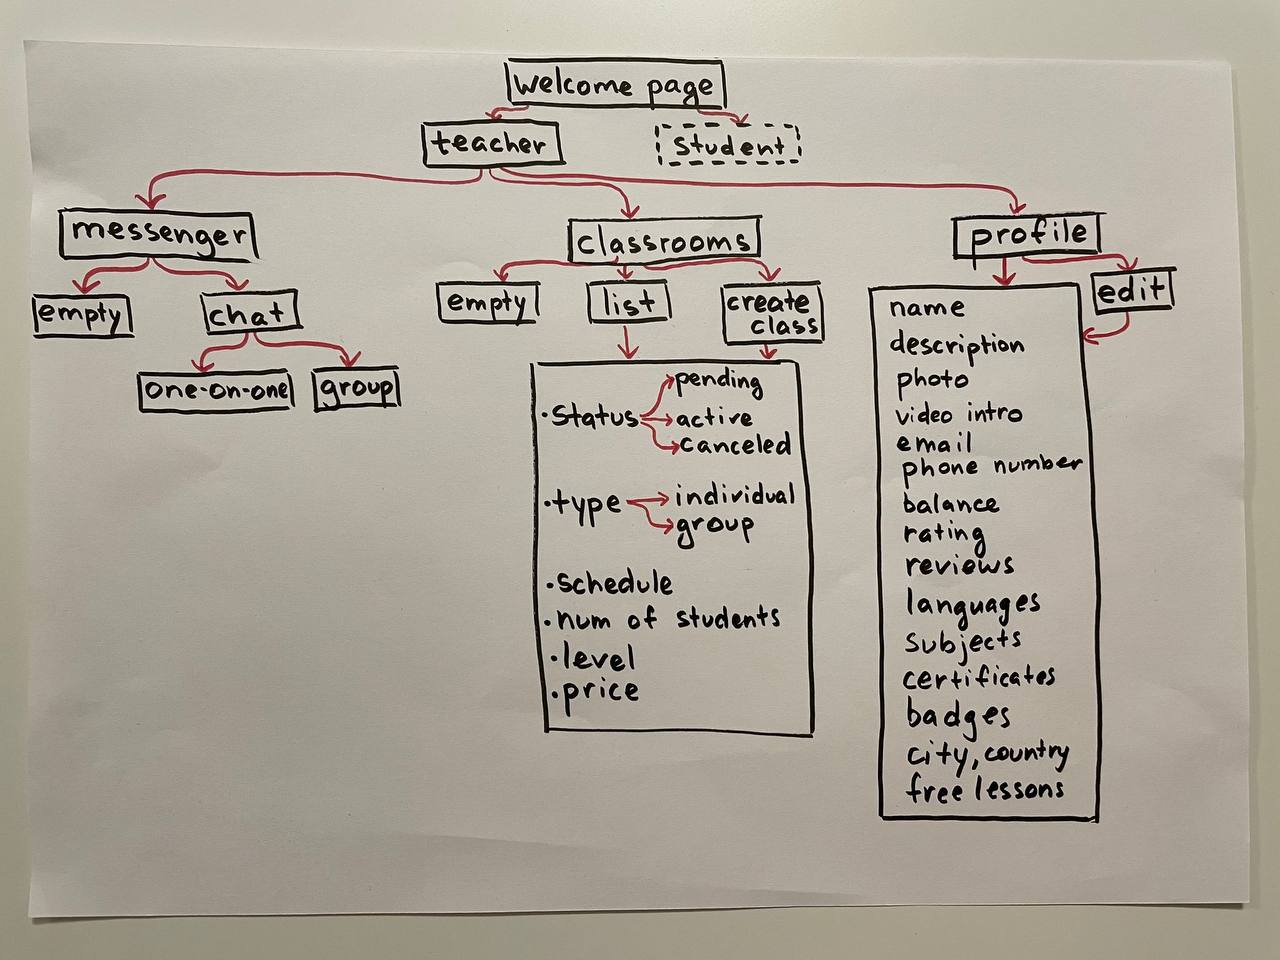 welcome page
teacher
student
messenger
classrooms
profile
empty
chat
one-on-one
group
empty
list
create
class
edit
•status
pending
active
canceled
•type
individual
group
•schedule
•num of students
•level
•price
name
description
photo
video intro
email
phone number
balance
rating
reviews
languages
subjects
certificates
badges
city, country
free lessons